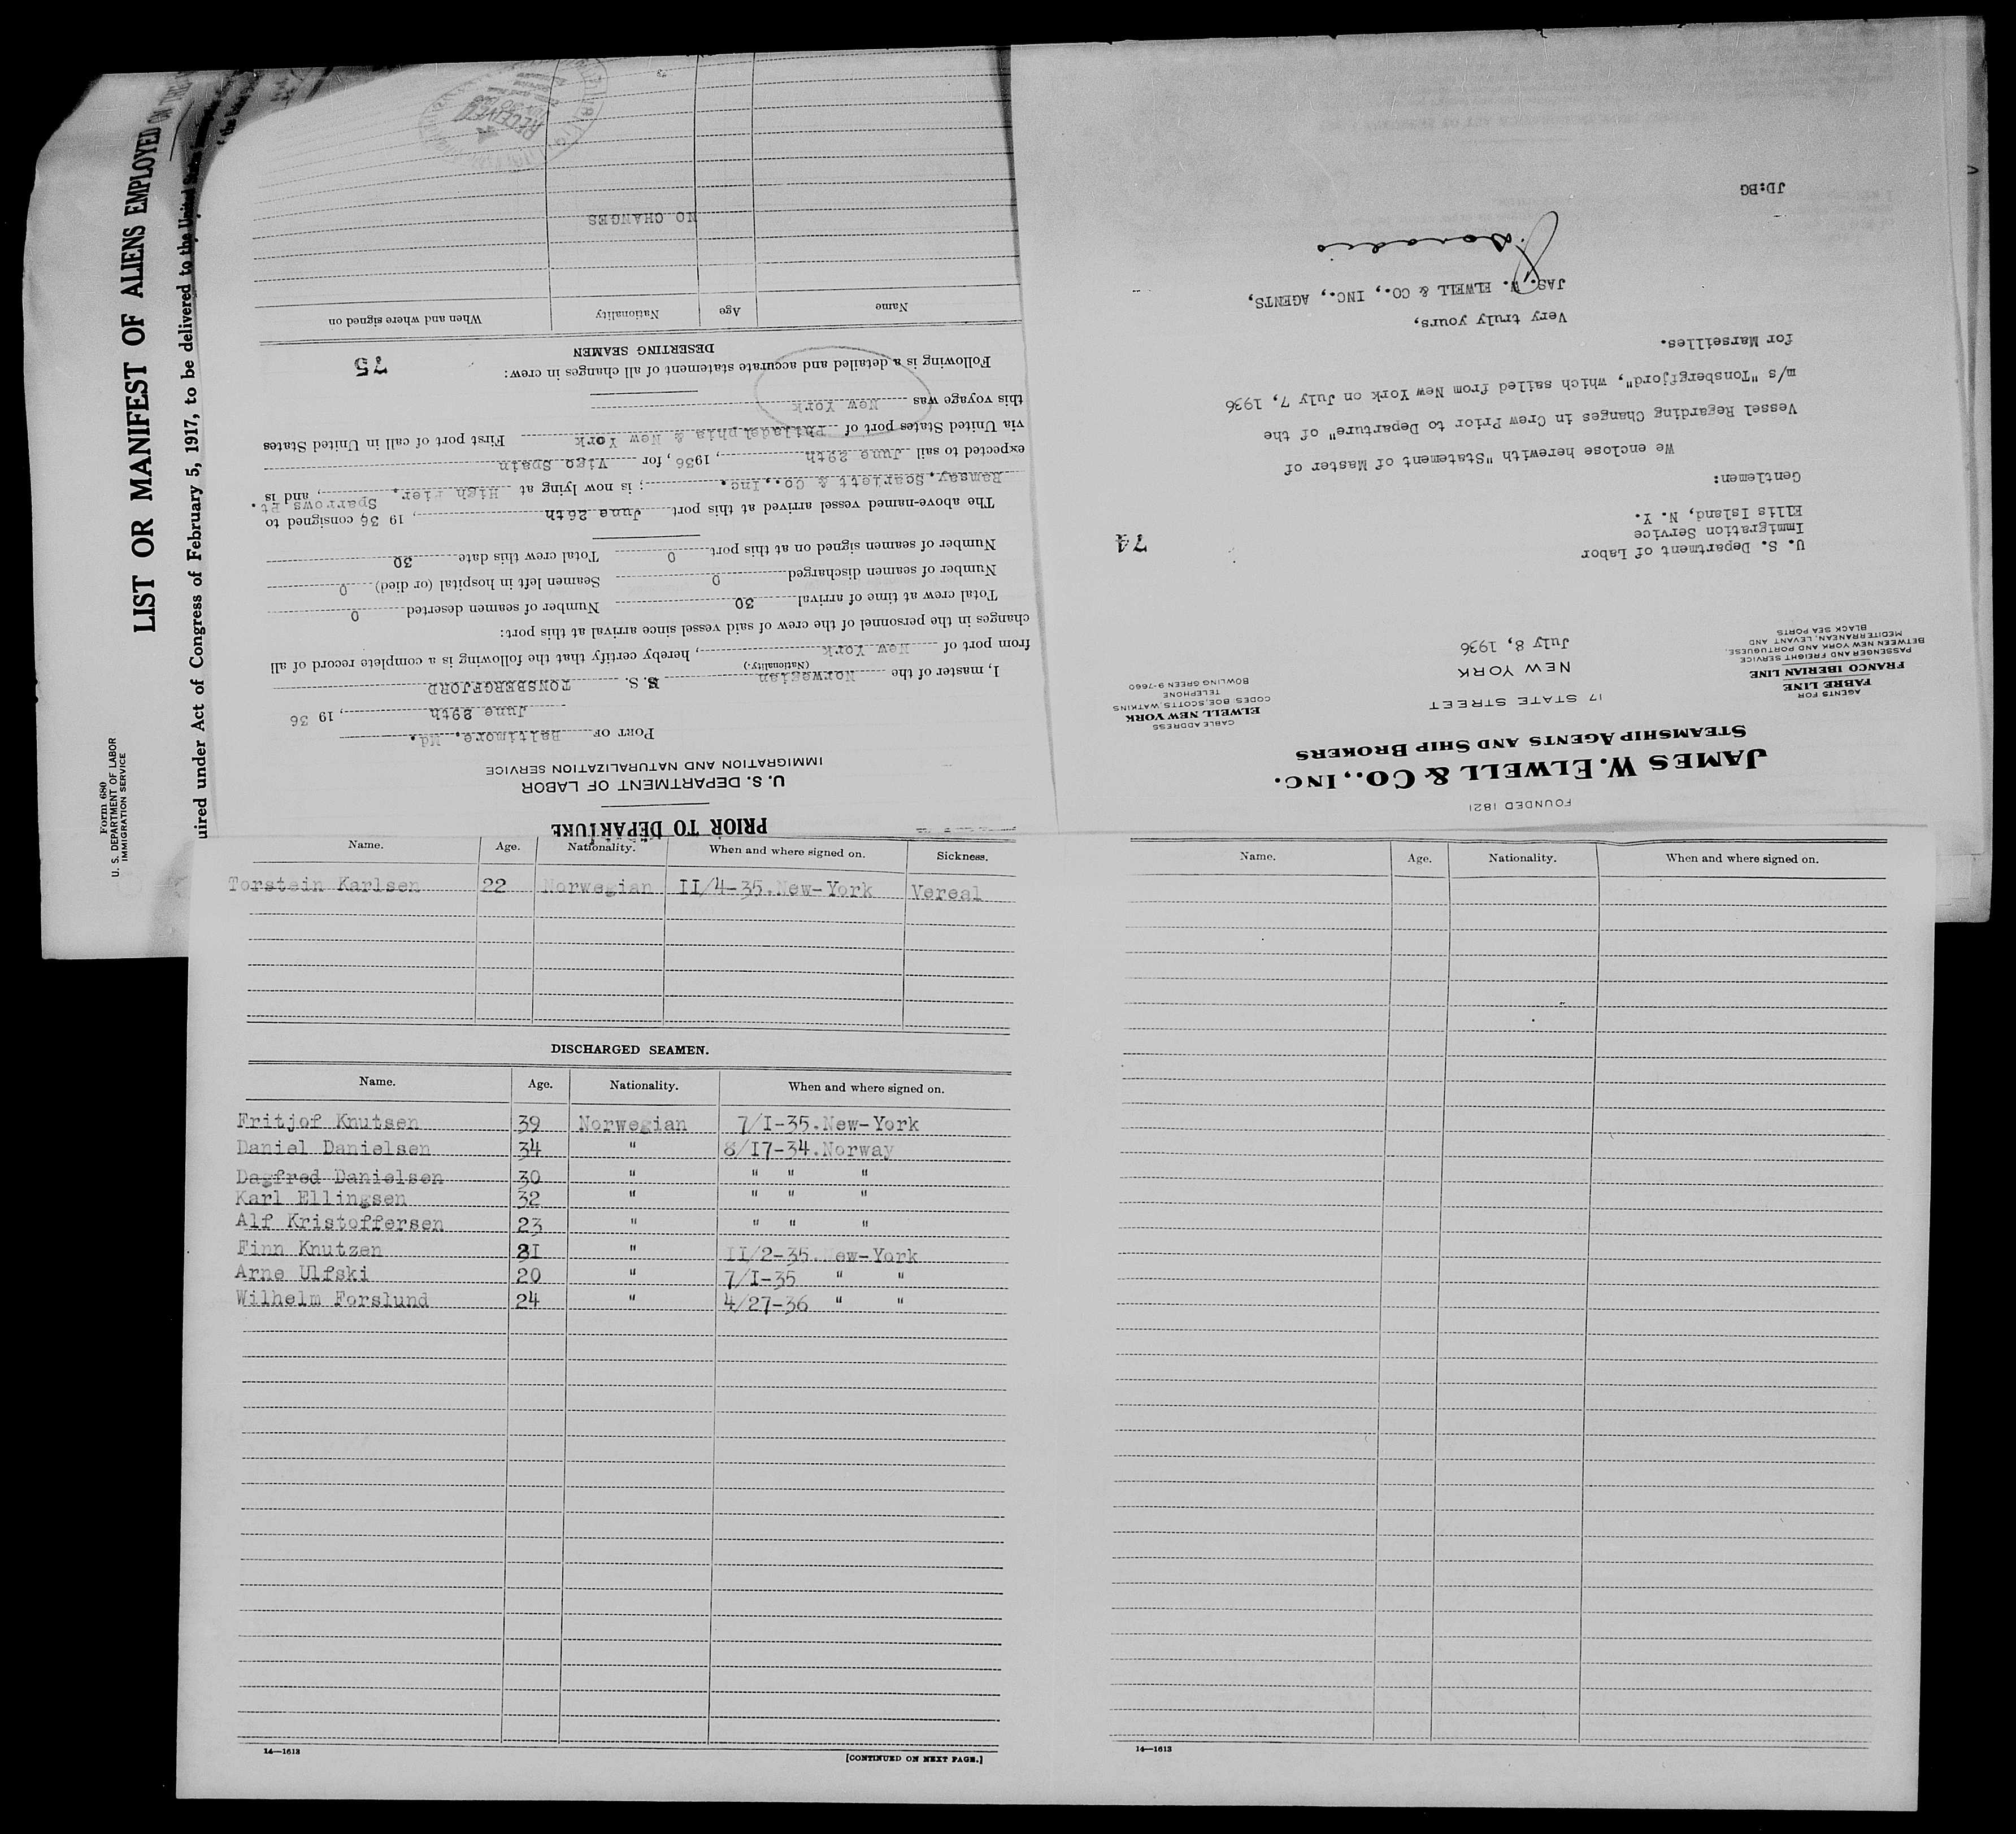 Form 680
U. S. DEPARTMENT OF LABOR
IMMIGRATION SERVICE
LIST OR MANIFEST OF ALIENS EMPLOYED ON THE
uired under Act of Congress of February 5, 1917, to be delivered to the United States
PRIOR TO DEPARTURE
U. S. DEPARTMENT OF LABOR
IMMIGRATION AND NATURALIZATION SERVICE
PORT OF Baltimore, Md.
June 29th, 19 36
I, master of the Norwegian S. S. TONSBERGFJORD
(Nationality)
from port of New York, hereby certify that the following is a complete record of all
changes in the personnel of the crew of said vessel since arrival at this port:
Total crew at time of arrival 30 Number of seamen deserted 0
Number of seamen discharged 0 Seamen left in hospital (or died) 0
Number of seamen signed on at this port 0 Total crew this date 30
The above-named vessel arrived at this port June 26th, 19 36 consigned to
Ramsay, Scarlett & Co., Inc.; is now lying at High Pier, Sparrows Pt., and is
expected to sail June 29th, 1936, for Vigo Spain
via United States port of Philadelphia & New York First port of call in United States
this voyage was New York
Following is a detailed and accurate statement of all changes in crew:
DESERTING SEAMEN
75
Name Age Nationality When and where signed on
NO CHANGES
RECEIVED
FOUNDED 1821
JAMES W. ELWELL & CO., INC.
STEAMSHIP AGENTS AND SHIP BROKERS
17 STATE STREET
NEW YORK
AGENTS FOR
FABRE LINE
FRANCO IBERIAN LINE
PASSENGER AND FREIGHT SERVICE
BETWEEN NEW YORK AND PORTUGUESE,
MEDITERRANEAN, LEVANT AND
BLACK SEA PORTS
CABLE ADDRESS
ELWELL NEW YORK
CODES: BOE, SCOTTS, WATKINS
TELEPHONE
BOWLING GREEN 9-7660
July 8, 1936
U. S. Department of Labor
Immigration Service
Ellis Island, N. Y.
74
Gentlemen:
We enclose herewith "Statement of Master of
Vessel Regarding Changes in Crew Prior to Departure" of the
m/s "Tonsbergfjord", which sailed from New York on July 7, 1936
for Marseilles.
Very truly yours,
JAS. W. ELWELL & CO., INC., AGENTS,
JD:BG
Name. Age. Nationality. When and where signed on. Sickness.
Torstein Karlsen 22 Norwegian II/4-35.New-York Vereal
DISCHARGED SEAMEN.
Name. Age. Nationality. When and where signed on.
Fritjof Knutsen 39 Norwegian 7/I-35.New-York
Daniel Danielsen 34 " 8/I7-34.Norway
Dagfred Danielsen 30 " " " "
Karl Ellingsen 32 " " " "
Alf Kristoffersen 23 " " " "
Finn Knutzen 21 " II/2-35.New-York
Arne Ulfski 20 " 7/I-35 " "
Wilhelm Forslund 24 " 4/27-36 " "
14—1613
[CONTINUED ON NEXT PAGE.]
Name. Age. Nationality. When and where signed on.
14—1613